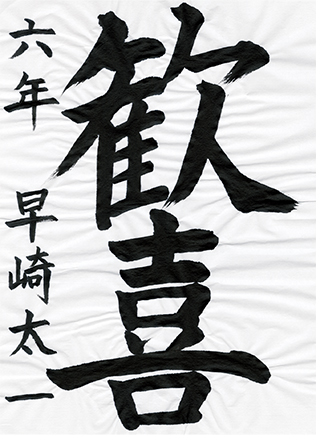 歓喜
六年 早崎太一